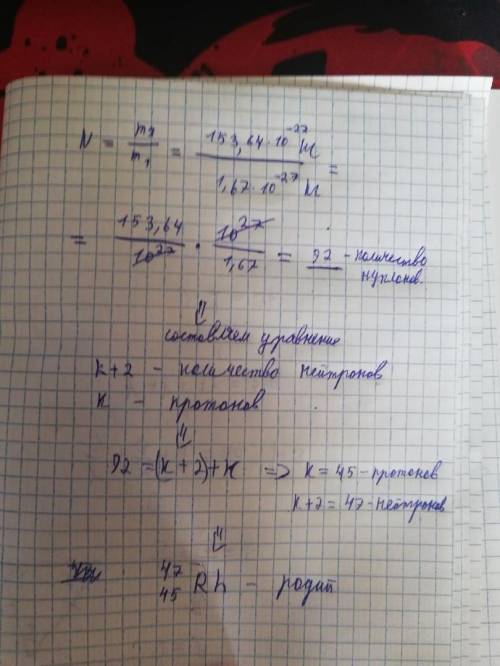 N = m₂/m₁ = 153,64·10⁻²⁷ кг / 1,67·10⁻²⁷ кг =
= 153,64/10²⁷ · 10²⁷/1,67 = 92 - количество нуклонов.
⇓
составляем уравнение
к+2 - количество нейтронов
к - протонов
⇓
92 = (к+2)+к => к = 45 - протонов
к+2 = 47 - нейтронов
⇓
⁴⁷₄₅Rh - родий